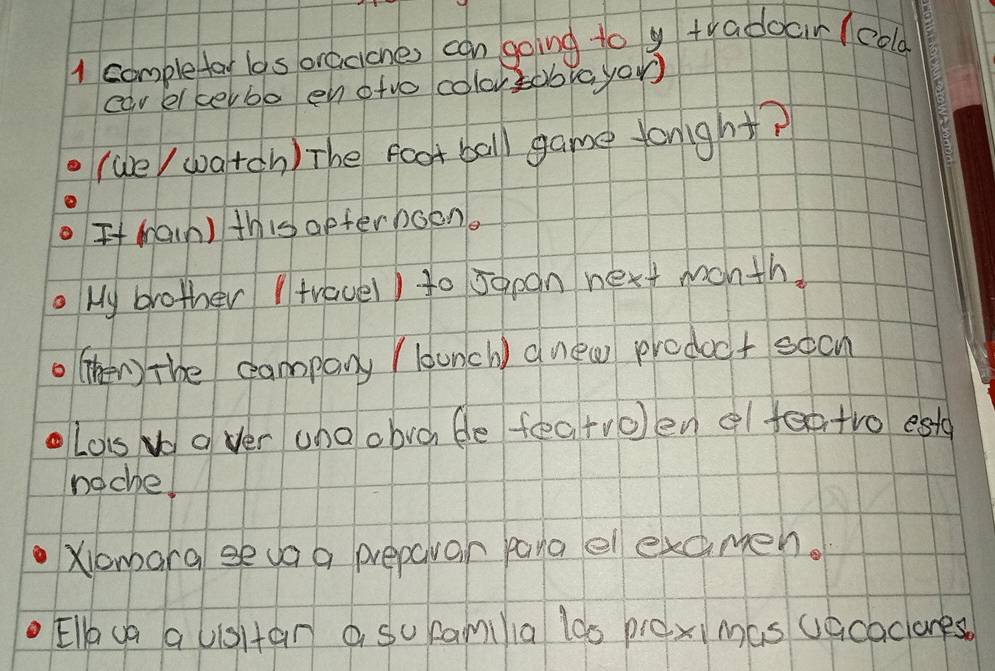 1 completar las oraciones con going to y traducir (colo
car el verbo en otro color, subrayar)
(we/watch) The foot ball game tonight?
It (rain) this afternoon.
My brother (travel) to Japan next month.
(Then) The company (launch) a new product soon
Luis va a ver una obra (de teatro) en el teatro esta
noche.
Xiomara se va a preparar para el examen.
Ella va a visitar a su familia las próximas vacaciones.